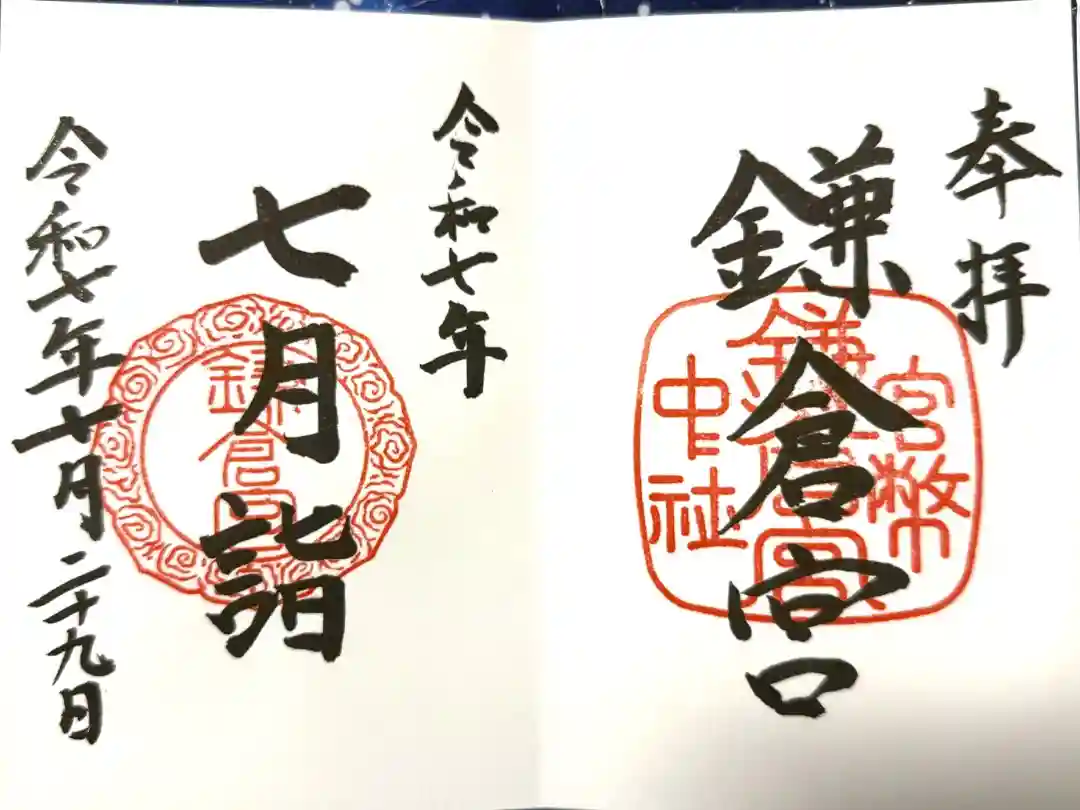 奉拝
鎌倉宮
官幣
鎌倉宮
中社
令和七年
七月詣
鎌倉宮
令和七年七月二十九日